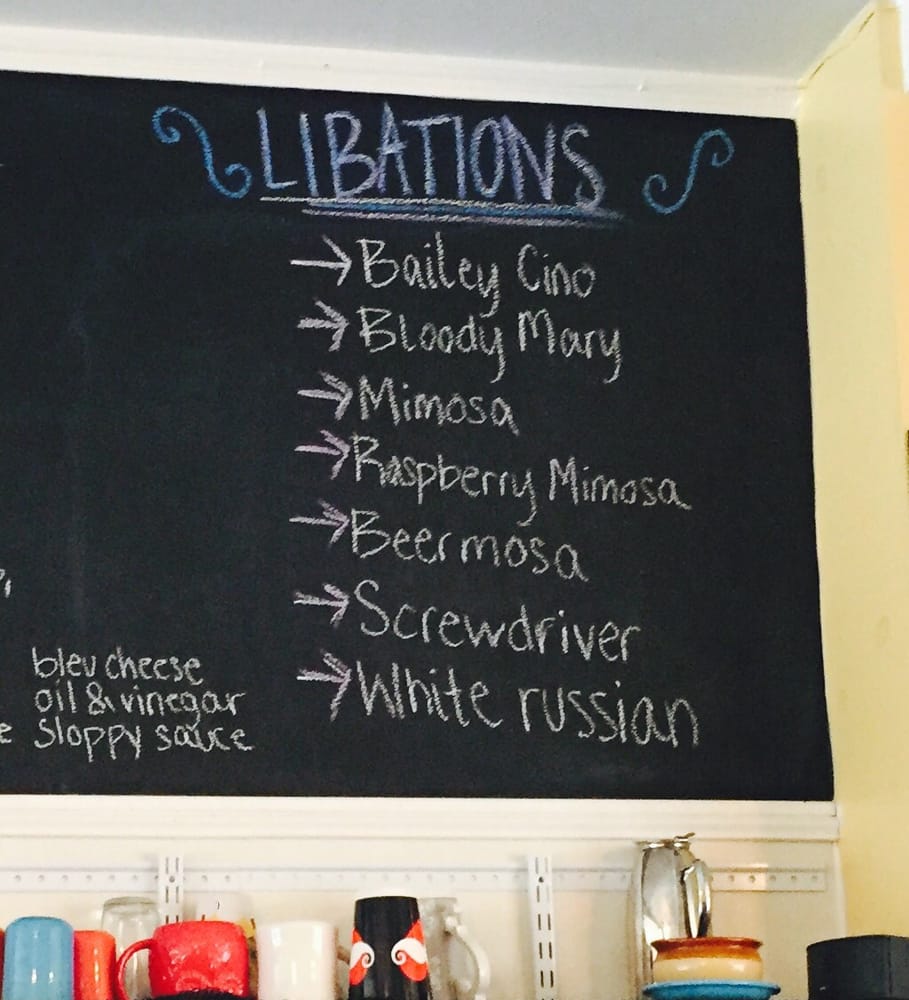 LIBATIONS
→Bailey Cino
→Bloody Mary
→Mimosa
→Raspberry Mimosa
→Beermosa
→Screwdriver
→White russian
bleu cheese
oil & vinegar
sloppy sauce